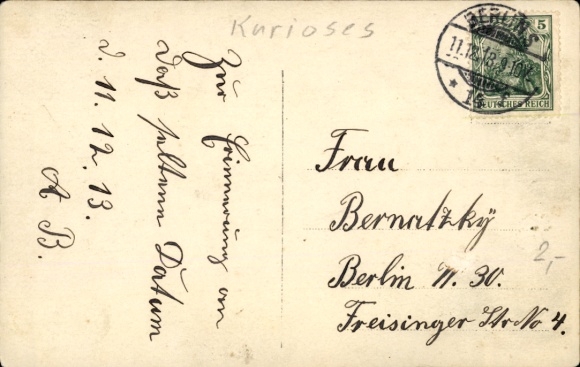 Kurioses
Zur Erinnerung an
daß seltene Datum
d. 11. 12. 13.
A B.
BERLIN S
11.12.13.9-10V.
* 
5
DEUTSCHES REICH
Frau
Bernatzky
Berlin W. 30.
Freisinger Str No 4.
2,-